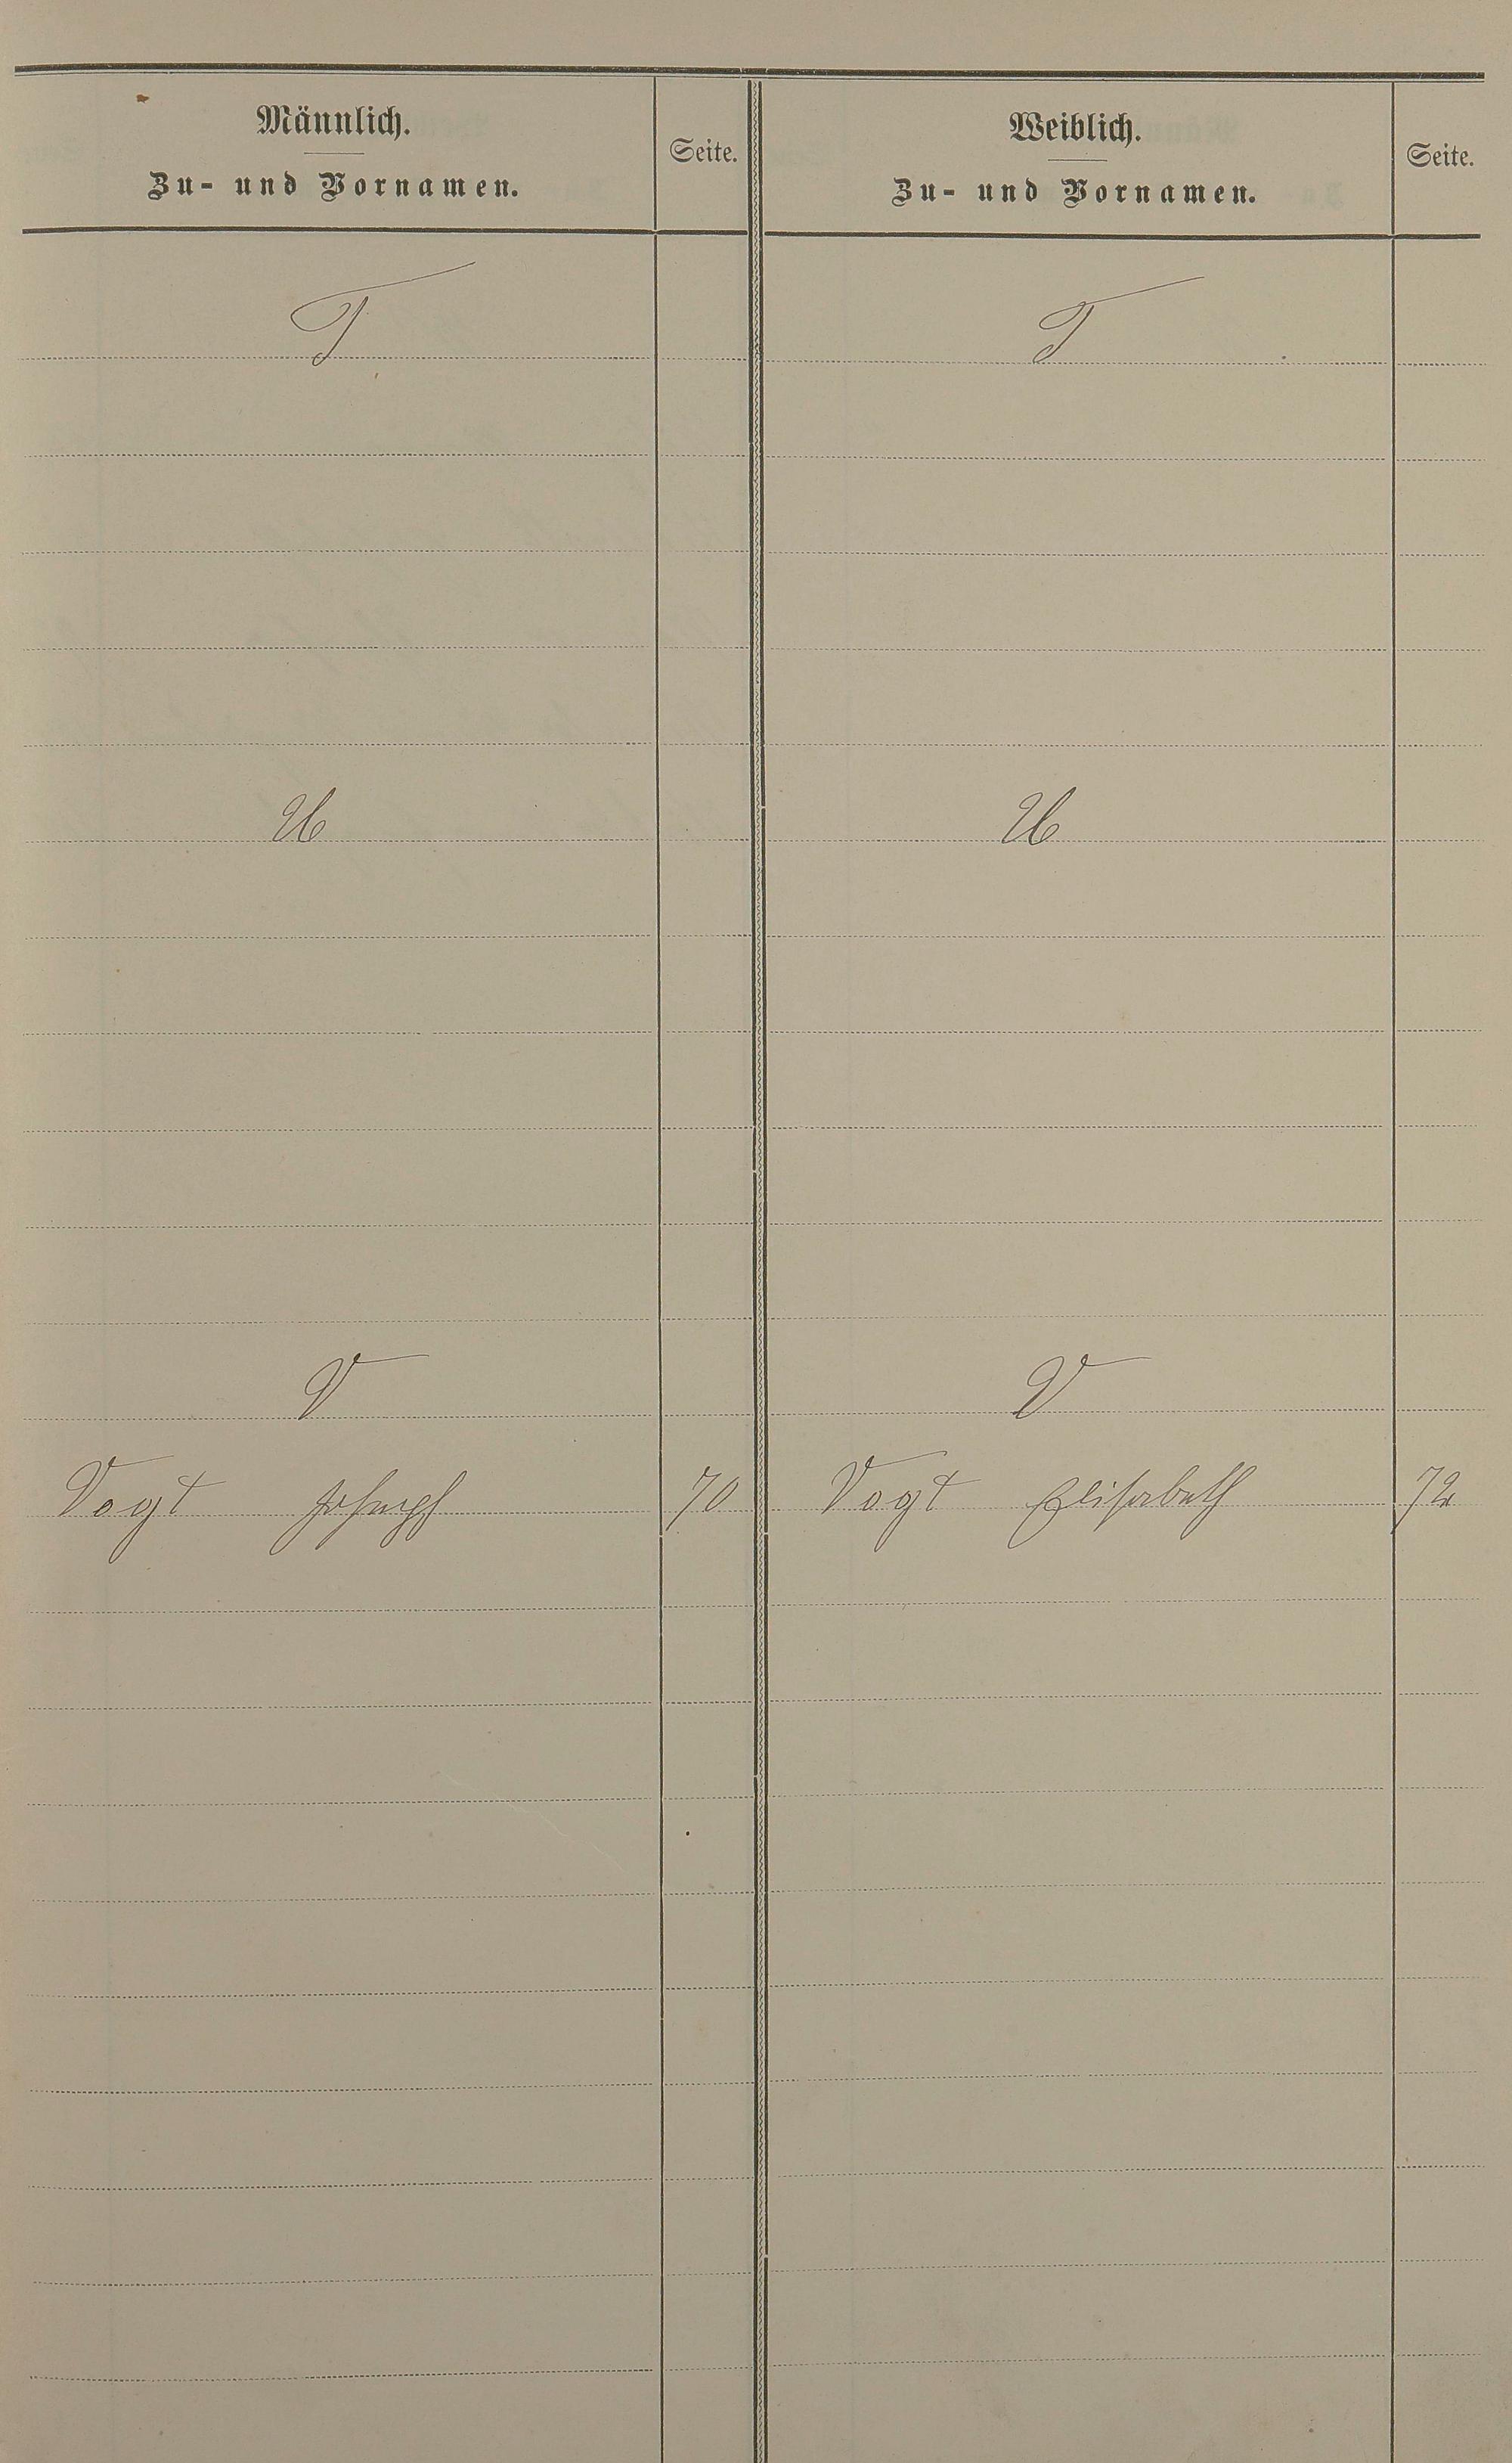 Männlich.
Zu- und Vornamen.
Seite.
Weiblich.
Zu- und Vornamen.
Seite.
T
T
U
U
V
V
Vogt Johann 70
Vogt Elisabeth 72